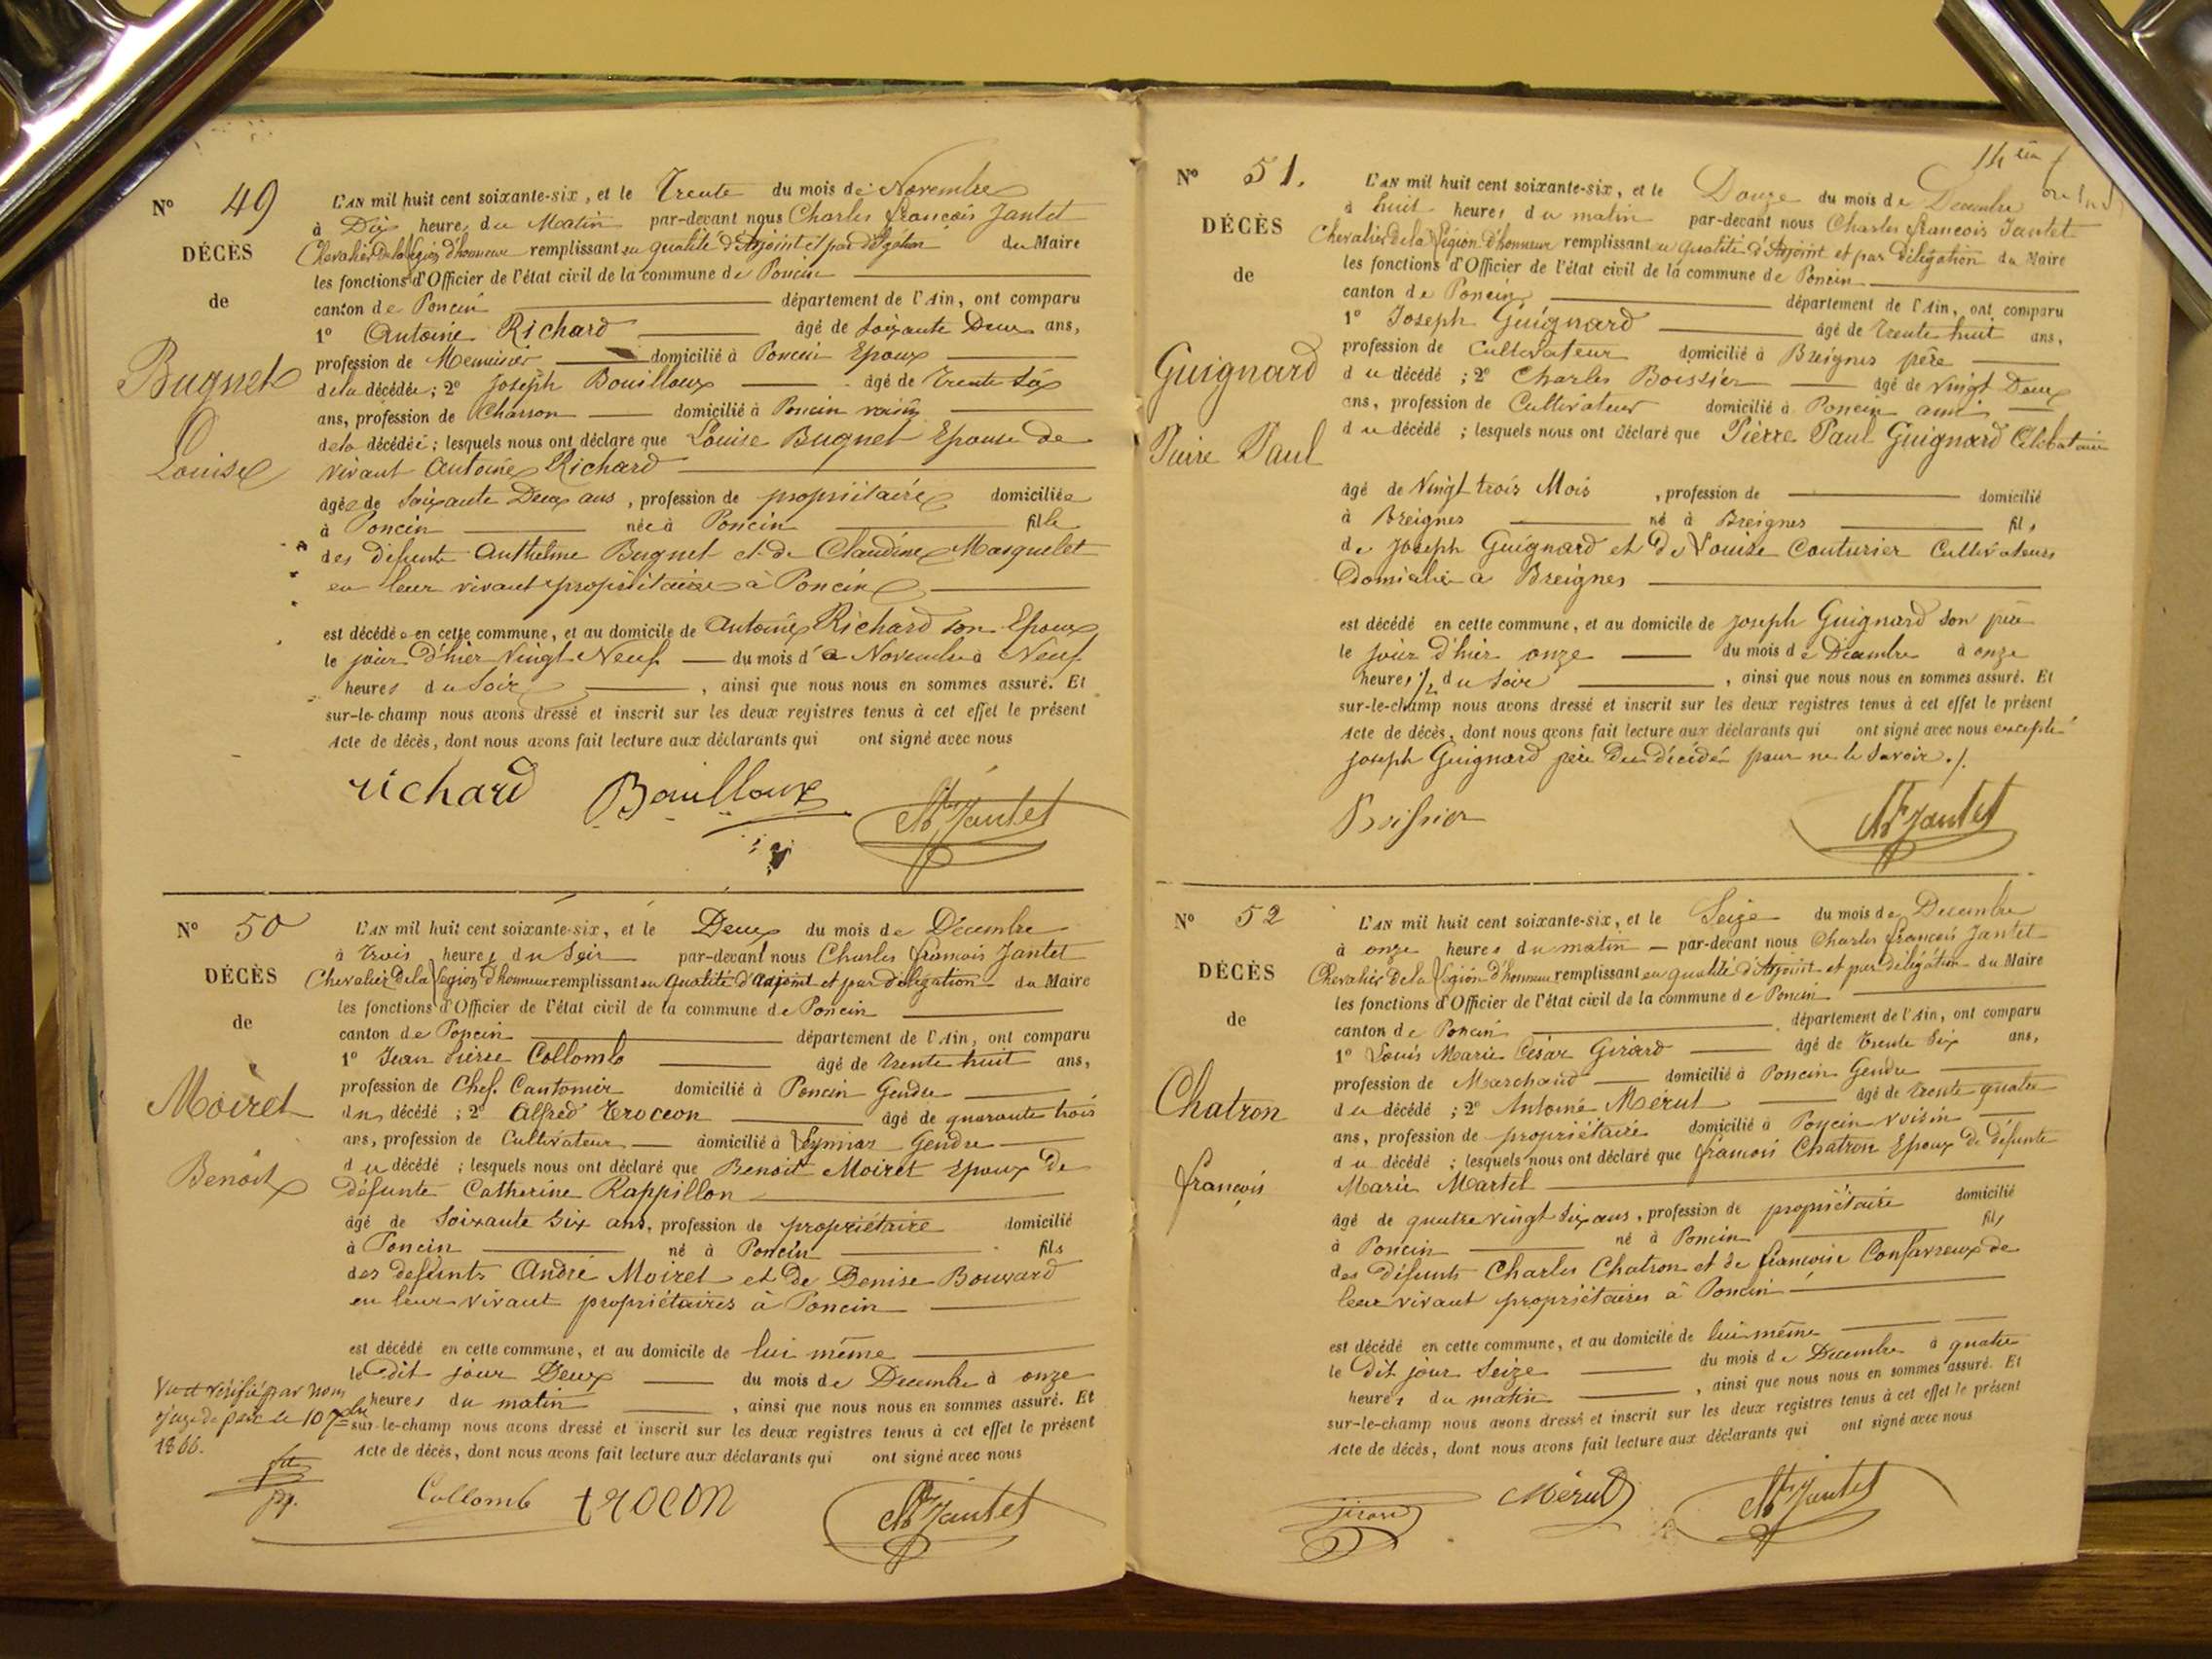 N° 49
DÉCÈS
de
Bugnet
Louise
L'AN mil huit cent soixante-six, et le Trente du mois de Novembre
à Dix heures du Matin par-devant nous Charles françois Jantet
Chevalier De la Légion d'honneur remplissant en qualité d'Adjoint et par délégation du Maire
les fonctions d'Officier de l'état civil de la commune de Poncin
canton de Poncin département de l'Ain, ont comparu
1° Antoine Richard âgé de Soixante Deux ans,
profession de Menuisier domicilié à Poncin Epoux
de la décédée ; 2° Joseph Bouilloux âgé de Trente Six
ans, profession de Charron domicilié à Poncin voisin
de la décédée ; lesquels nous ont déclaré que Louise Bugnet Epouse de
vivant Antoine Richard
âgée de Soixante Deux ans, profession de propriétaire domiciliée
à Poncin née à Poncin fille
des défunts Anthelme Bugnet et de Claudine Masquelet
en leur vivant propriétaires à Poncin
est décédée en cette commune, et au domicile de Antoine Richard son Epoux
le jour d'hier Vingt Neuf du mois d e Novembre à Neuf
heures du Soir , ainsi que nous nous en sommes assuré. Et
sur-le-champ nous avons dressé et inscrit sur les deux registres tenus à cet effet le présent
Acte de décès, dont nous avons fait lecture aux déclarants qui ont signé avec nous
richard Bouilloux Ch Jantet
N° 50
DÉCÈS
de
Moiret
Benoit
L'AN mil huit cent soixante-six, et le Deux du mois de Décembre
à trois heures du Soir par-devant nous Charles françois Jantet
Chevalier De la Légion d'honneur remplissant en qualité d'adjoint et par délégation du Maire
les fonctions d'Officier de l'état civil de la commune de Poncin
canton de Poncin département de l'Ain, ont comparu
1° Jean Pierre Collomb âgé de trente huit ans,
profession de Chef. Cantonier domicilié à Poncin Gendre
du décédé ; 2° Alfred Trocon âgé de quarante trois
ans, profession de Cultivateur domicilié à Leymiaz Gendre
du décédé ; lesquels nous ont déclaré que Benoit Moiret Epoux De
défunte Catherine Rappillon
âgé de Soixante Six ans, profession de propriétaire domicilié
à Poncin né à Poncin fils
des défunts André Moiret et De Denise Bouvard
en leur vivant propriétaires à Poncin
est décédé en cette commune, et au domicile de lui même
le Dit jour Deux du mois de Decembre à onze
heures du matin , ainsi que nous nous en sommes assuré. Et
sur-le-champ nous avons dressé et inscrit sur les deux registres tenus à cet effet le présent
Acte de décès, dont nous avons fait lecture aux déclarants qui ont signé avec nous
Vu et vérifié par nous
juge de paix le 10 Xbre
1866.
Collomb trocon Ch Jantet
N° 51.
DÉCÈS
de
Guignard
Pierre Paul
L'AN mil huit cent soixante-six, et le Douze du mois de Decembre
à huit heures du matin par-devant nous Charles francois Jantet
Chevalier De la Légion d'honneur remplissant en qualité d'Adjoint et par délégation du Maire
les fonctions d'Officier de l'état civil de la commune de Poncin
canton de Poncin département de l'Ain, ont comparu
1° Joseph Guignard âgé de Trente huit ans,
profession de Cultivateur domicilié à Breignes père
du décédé ; 2° Charles Boissier âgé de Vingt Deux
ans, profession de Cultivateur domicilié à Poncin ami
du décédé ; lesquels nous ont déclaré que Pierre Paul Guignard Célibataire
âgé de Vingt trois Mois , profession de domicilié
à Breignes né à Breignes fils
de Joseph Guignard et De Louise Couturier Cultivateurs
Domicilié à Breignes
est décédé en cette commune, et au domicile de Joseph Guignard son père
le jour d'hier onze du mois de Décembre à onze
heures 1/2 du Soir , ainsi que nous nous en sommes assuré. Et
sur-le-champ nous avons dressé et inscrit sur les deux registres tenus à cet effet le présent
Acte de décès, dont nous avons fait lecture aux déclarants qui ont signé avec nous excepté
Joseph Guignard père Du décédé pour ne le savoir ./.
Boissier Ch Jantet
N° 52
DÉCÈS
de
Chatron
françois
L'AN mil huit cent soixante-six, et le Seize du mois de Decembre
à onze heures du matin par-devant nous Charles françois Jantet
Chevalier De la Légion d'honneur remplissant en qualité d'Adjoint et par délégation du Maire
les fonctions d'Officier de l'état civil de la commune de Poncin
canton de Poncin département de l'Ain, ont comparu
1° Louis Marie César Girard âgé de trente Six ans,
profession de Marchand domicilié à Poncin Gendre
du décédé ; 2° Antoine Mérut âgé de trente quatre
ans, profession de propriétaire domicilié à Poncin voisin
du décédé ; lesquels nous ont déclaré que françois Chatron Epoux De défunte
Marie Martel
âgé de quatre vingt Six ans, profession de propriétaire domicilié
à Poncin né à Poncin fils
des défunts Charles Chatron et de françoise Confavreux de
leur vivant propriétaires à Poncin
est décédé en cette commune, et au domicile de lui même
le dit jour Seize du mois de Decembre à quatre
heures du matin , ainsi que nous nous en sommes assuré. Et
sur-le-champ nous avons dressé et inscrit sur les deux registres tenus à cet effet le présent
Acte de décès, dont nous avons fait lecture aux déclarants qui ont signé avec nous
Girard Mérut Ch Jantet